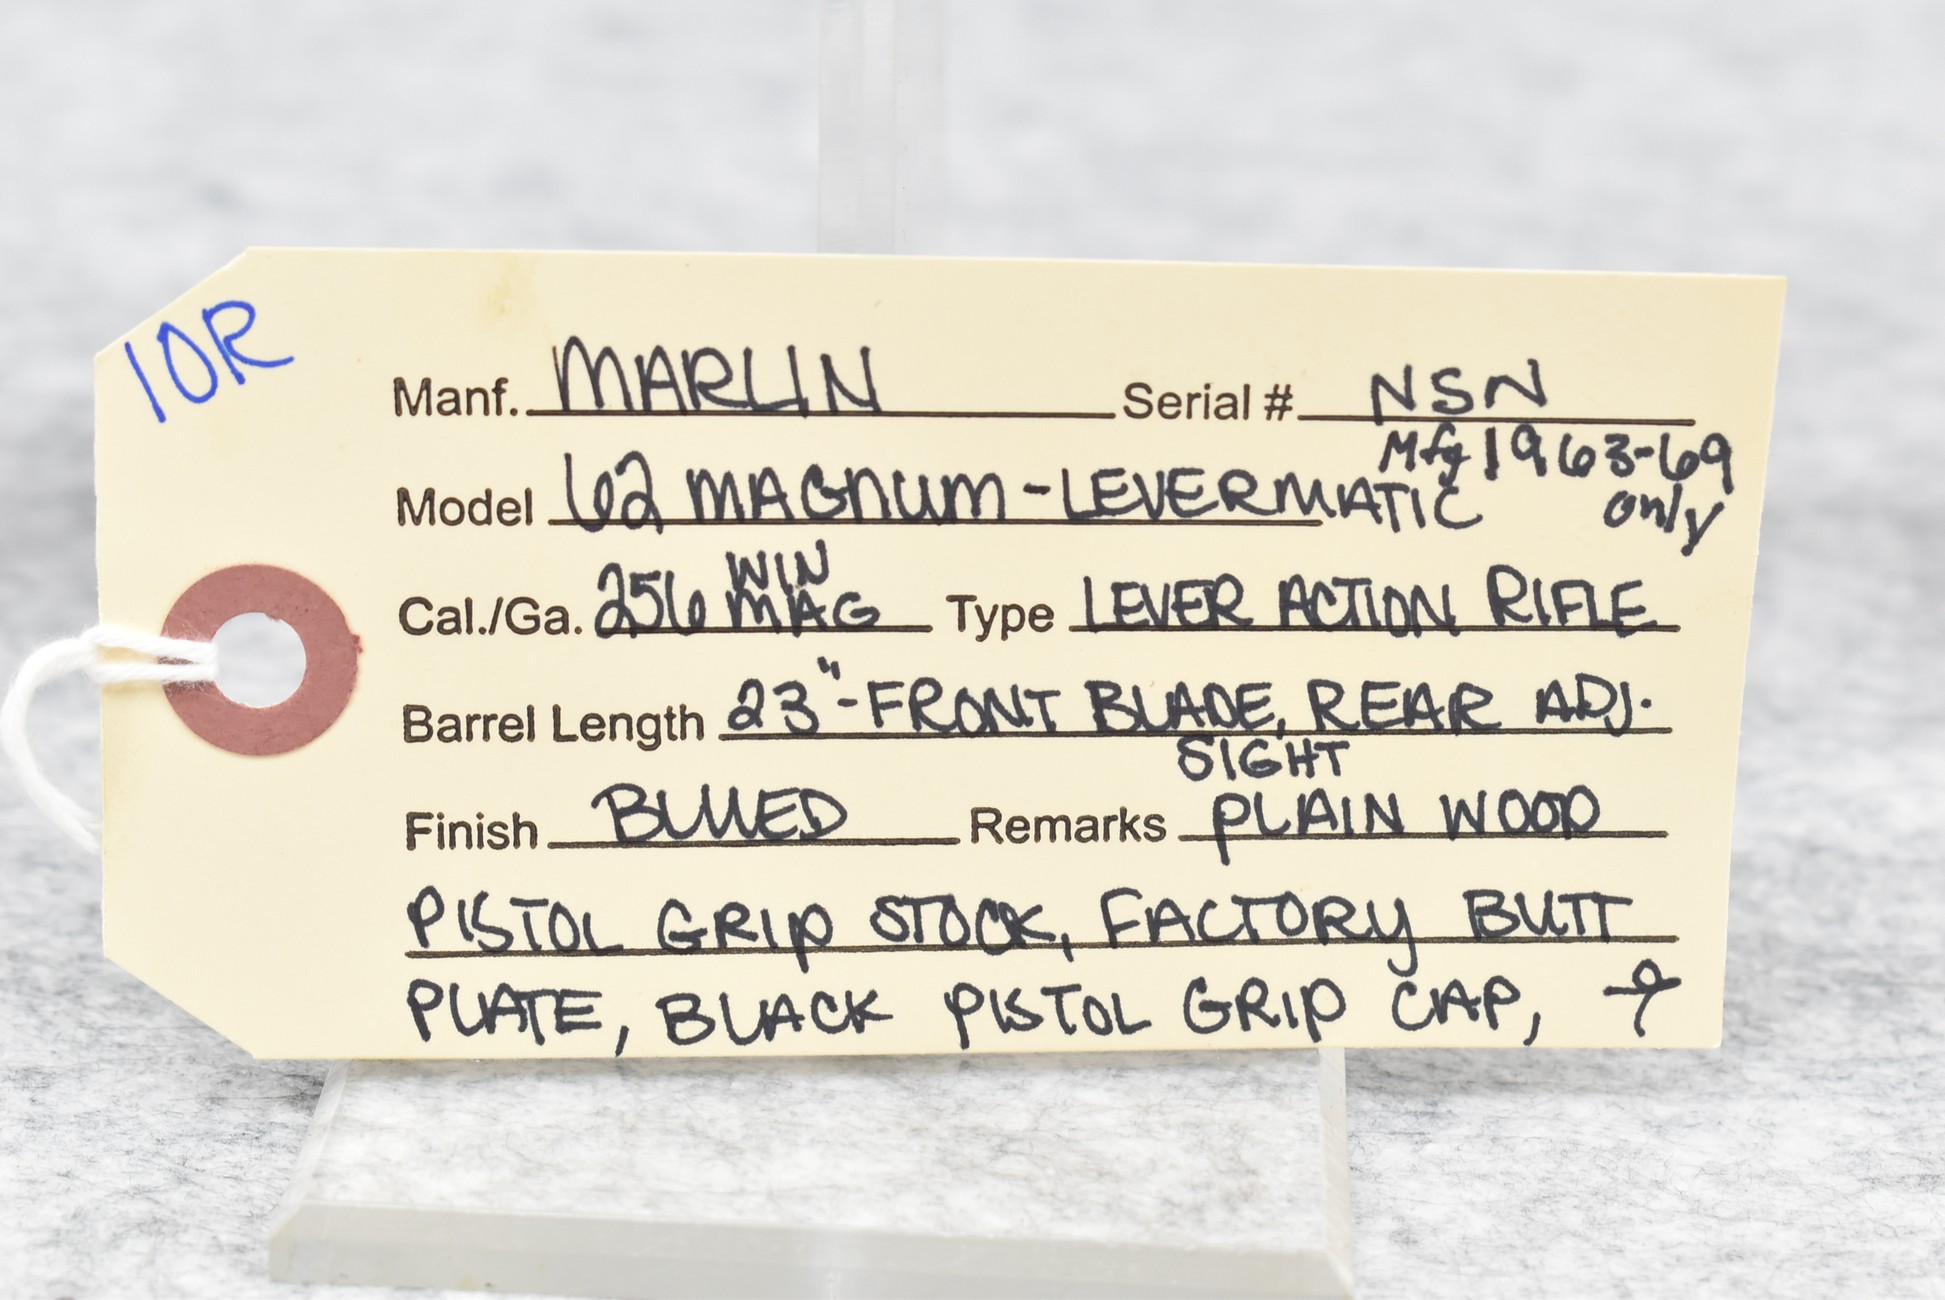 10R
Manf. MARLIN Serial # NSN
Mfg 1963-69
Model 62 MAGNUM - LEVERMATIC only
WIN
Cal./Ga. 256 MAG Type LEVER ACTION RIFLE
Barrel Length 23" - FRONT BLADE, REAR ADJ.
SIGHT
Finish BLUED Remarks PLAIN WOOD
PISTOL GRIP STOCK, FACTORY BUTT
PLATE, BLACK PISTOL GRIP CAP,